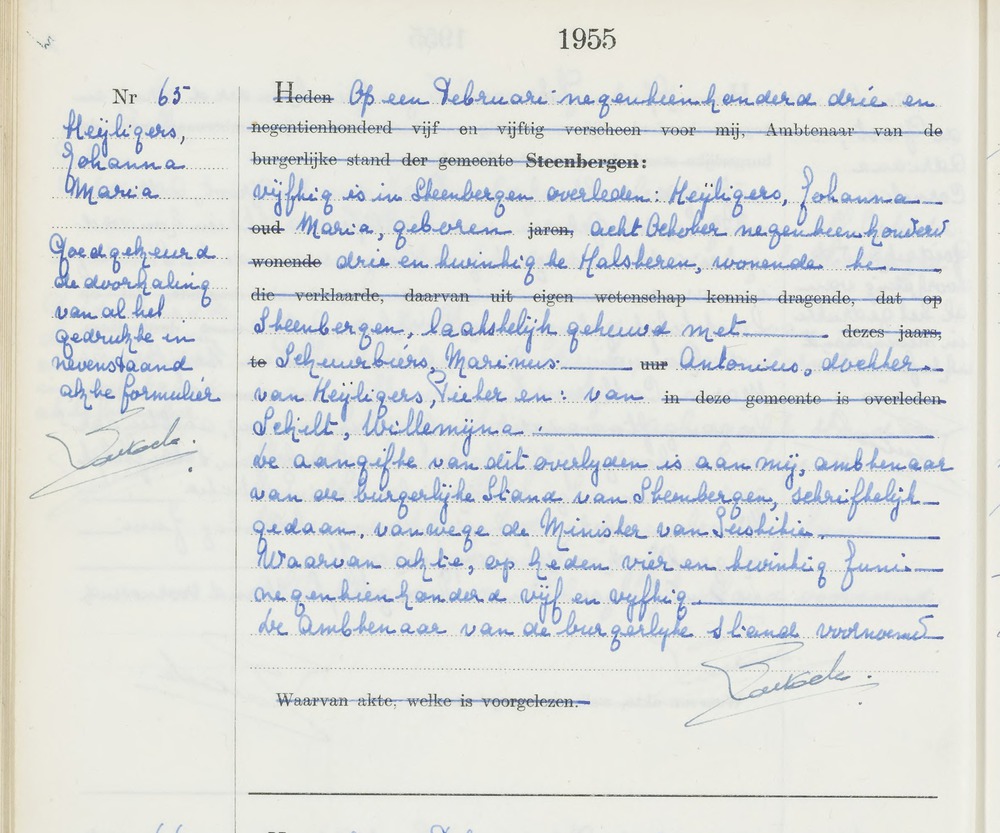 1955
Nr 65
Heijligers,
Johanna
Maria
Goedgekeurd
de doorhaling
van al het
gedrukte in
nevenstaand
akte formulier
Heden Op een Februari negentienhonderd drie en
negentienhonderd vijf en vijftig verscheen voor mij, Ambtenaar van de
burgerlijke stand der gemeente Steenbergen:
vijftig is in Steenbergen overleden: Heijligers, Johanna
oud Maria, geboren jaren, acht October negentienhonderd
wonende drie en twintig te Halsteren, wonende te
die verklaarde, daarvan uit eigen wetenschap kennis dragende, dat op
Steenbergen, laatstelijk gehuwd met dezes jaars,
te Scheurbiers, Marinus uur Antonius, dochter
van Heijligers, Pieter en: van in deze gemeente is overleden
Schilt, Willemijna.
De aangifte van dit overlyden is aan mij, ambtenaar
van de burgerlijke Stand van Steenbergen, schriftelijk
gedaan, vanwege de Minister van Justitie.
Waarvan akte, op heden vier en twintig Juni
negentienhonderd vijf en vyftig.
De Ambtenaar van de burgerlyke stand voornoemd
Waarvan akte, welke is voorgelezen.